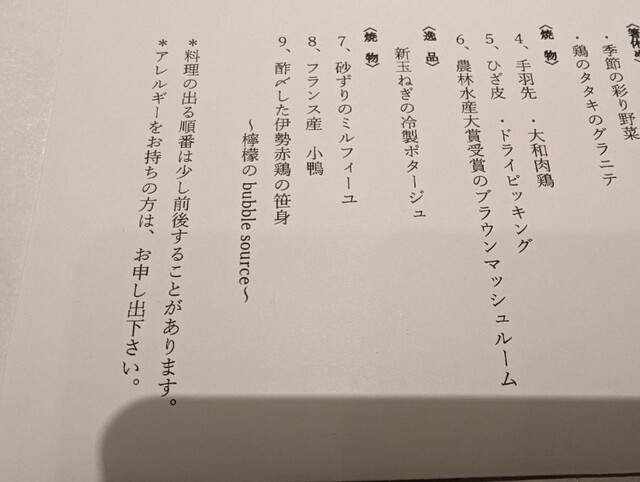 〈箸休め〉
・季節の彩り野菜
・鶏のタタキのグラニテ
〈焼 物〉
4、手羽先 ・大和肉鶏
5、ひざ皮 ・ドライピッキング
6、農林水産大賞受賞のブラウンマッシュルーム
〈逸 品〉
新玉ねぎの冷製ポタージュ
〈焼 物〉
7、砂ずりのミルフィーユ
8、フランス産 小鴨
9、酢〆した伊勢赤鶏の笹身
～檸檬の bubble source～
＊料理の出る順番は少し前後することがあります。
＊アレルギーをお持ちの方は、お申し出下さい。